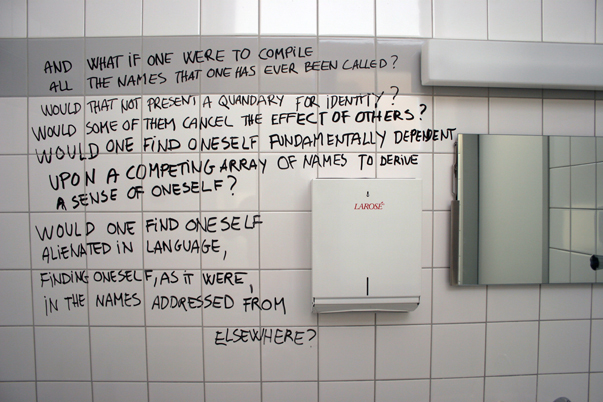 AND WHAT IF ONE WERE TO COMPILE
ALL THE NAMES THAT ONE HAS EVER BEEN CALLED?
WOULD THAT NOT PRESENT A QUANDARY FOR IDENTITY?
WOULD SOME OF THEM CANCEL THE EFFECT OF OTHERS?
WOULD ONE FIND ONESELF FUNDAMENTALLY DEPENDENT
UPON A COMPETING ARRAY OF NAMES TO DERIVE
A SENSE OF ONESELF?
WOULD ONE FIND ONESELF
ALIENATED IN LANGUAGE,
FINDING ONESELF, AS IT WERE,
IN THE NAMES ADDRESSED FROM
ELSEWHERE?
LAROSÉ